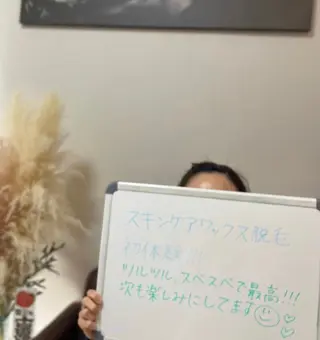 スキンケアワックス脱毛
初体験!!
ツルツル、スベスベで最高!!!
次も楽しみにしてます